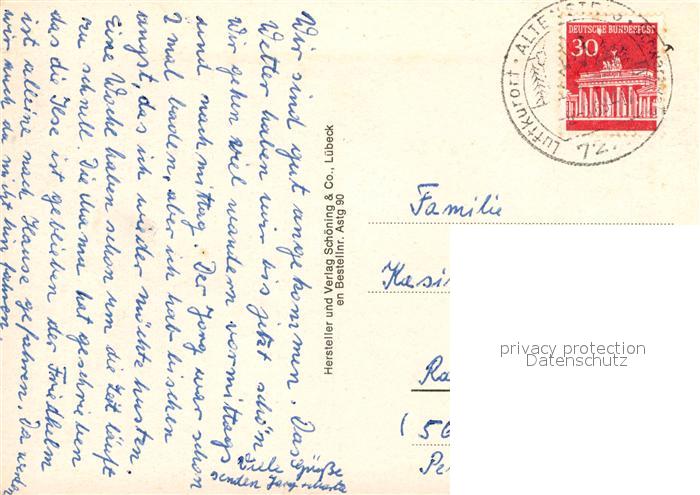 Wir sind gut angekommen. Das
Wetter haben wir bis jetzt schön
Wir gehen viel wandern vormittags
und nachmittag. Der Jörg war schon
2 mal baden, aber ich hab bischen
angst, das ich wieder möchte husten.
Eine Woche haben schon um die Zeit läuft
zu schnell. Die Mama hat geschrieben
das die Ilse ist geblieben der Friedhelm
ist alleine nach Hause gefahren. Da werden
wir auch da nicht hin fahren.
Viele Grüße
senden Jörg +
Hersteller und Verlag Schöning & Co., Lübeck
en Bestellnr. Astg 90
LUFTKURORT · ALTENSTEIG ·
72
DEUTSCHE BUNDESPOST
30
Familie
Kasi
Ra
(56
Pe
privacy protection
Datenschutz